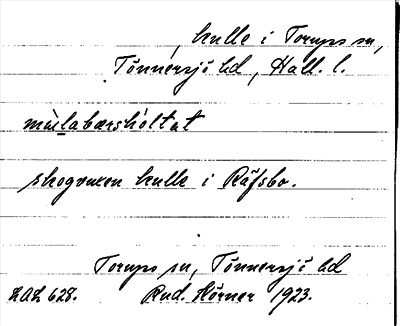 , kulle i Torups sn,
Tönnersjö hd, Hall. l.
mùlabærshòltet
skogvuxen kulle i Räfsbo.
Torups sn, Tönnersjö hd
LAL 628. Rud. Hörner 1923.